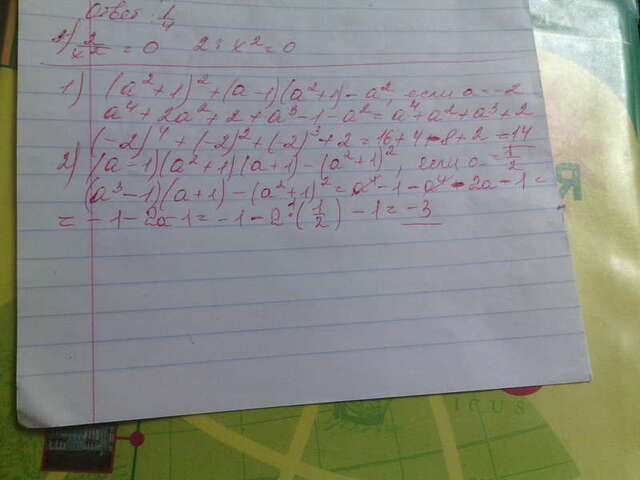 Ответ: 1/4
2) 2/x² = 0 2 : x² = 0
1) (a² + 1)² + (a - 1)(a² + 1) - a², если a = -2
a⁴ + 2a² + 2 + a³ - 1 - a² = a⁴ + a² + a³ + 2
(-2)⁴ + (-2)² + (-2)³ + 2 = 16 + 4 - 8 + 2 = 14
2) (a - 1)(a² + 1)(a + 1) - (a² + 1)², если a = 1/2
(a³ - 1)(a + 1) - (a² + 1)² = a⁴ - 1 - a⁴ - 2a - 1 =
= - 1 - 2a - 1 = - 1 - 2 · (1/2) - 1 = -3
16 US